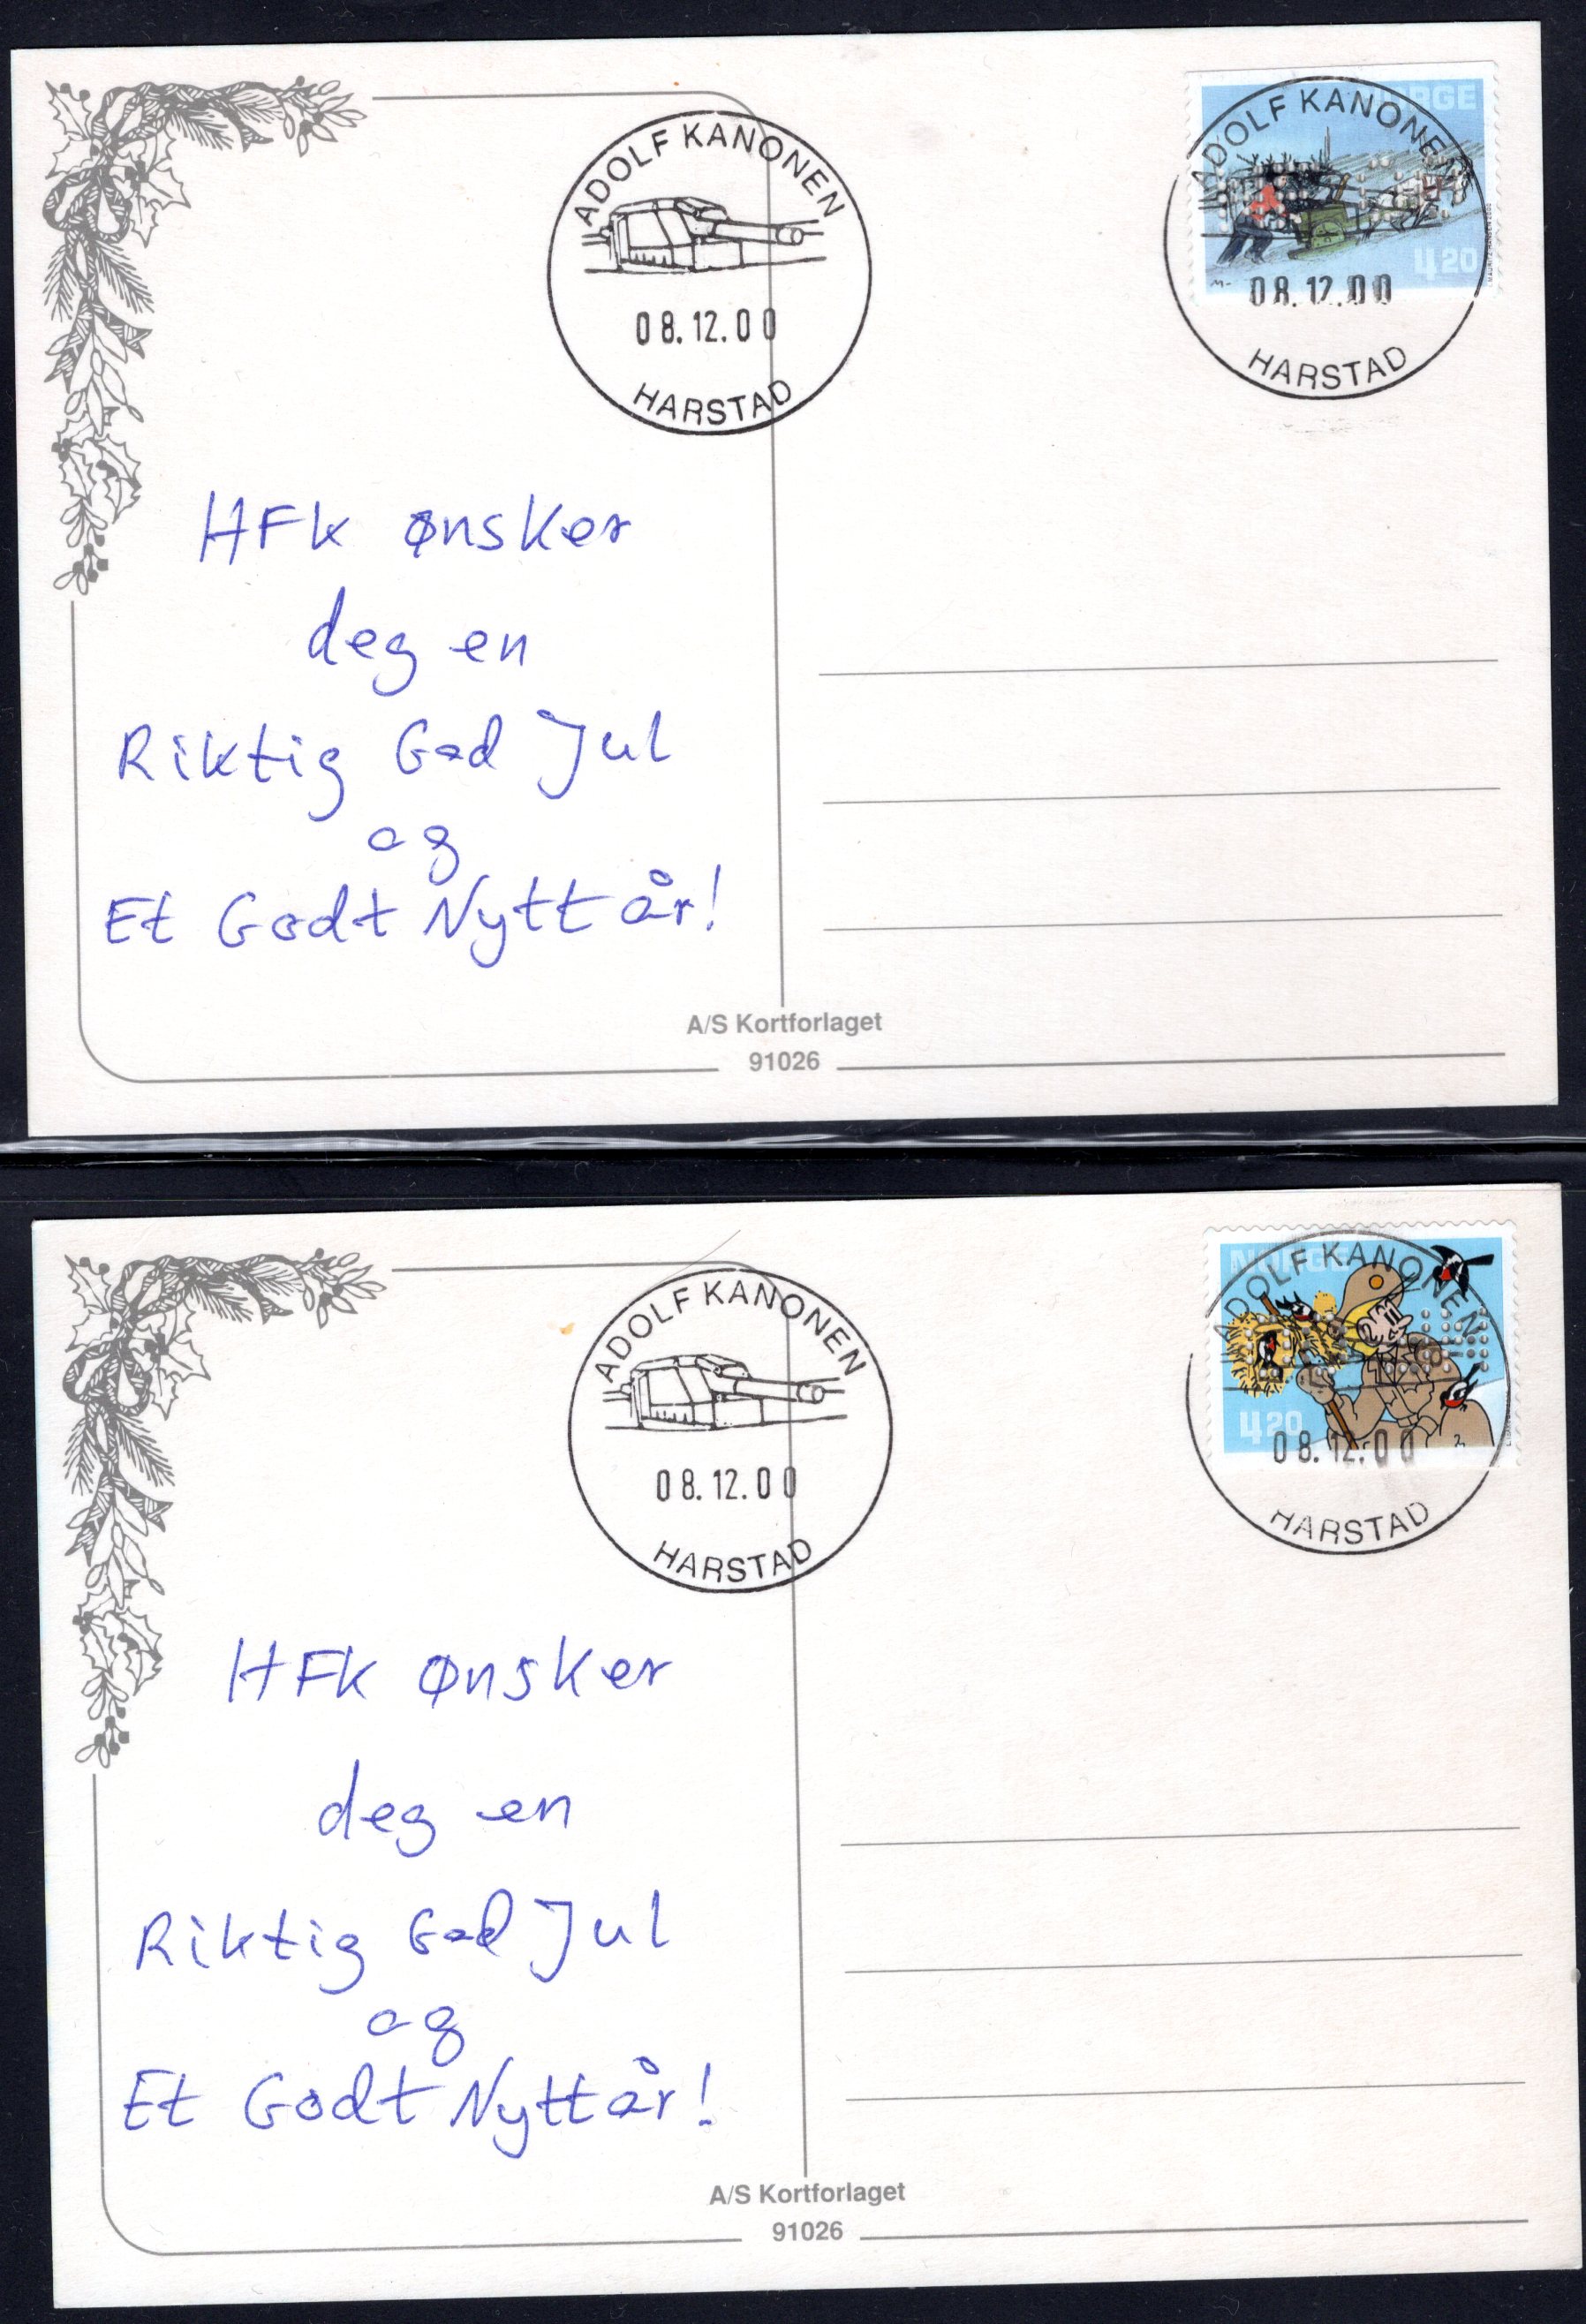 ADOLF KANONEN
08.12.00
HARSTAD
NORGE
420
ADOLF KANONEN
08.12.00
HARSTAD
HFK ønsker
deg en
Riktig God Jul
og
Et Godt Nytt år!
A/S Kortforlaget
91026
ADOLF KANONEN
08.12.00
HARSTAD
NORGE
420
ADOLF KANONEN
08.12.00
HARSTAD
HFK ønsker
deg en
Riktig God Jul
og
Et Godt Nytt år!
A/S Kortforlaget
91026